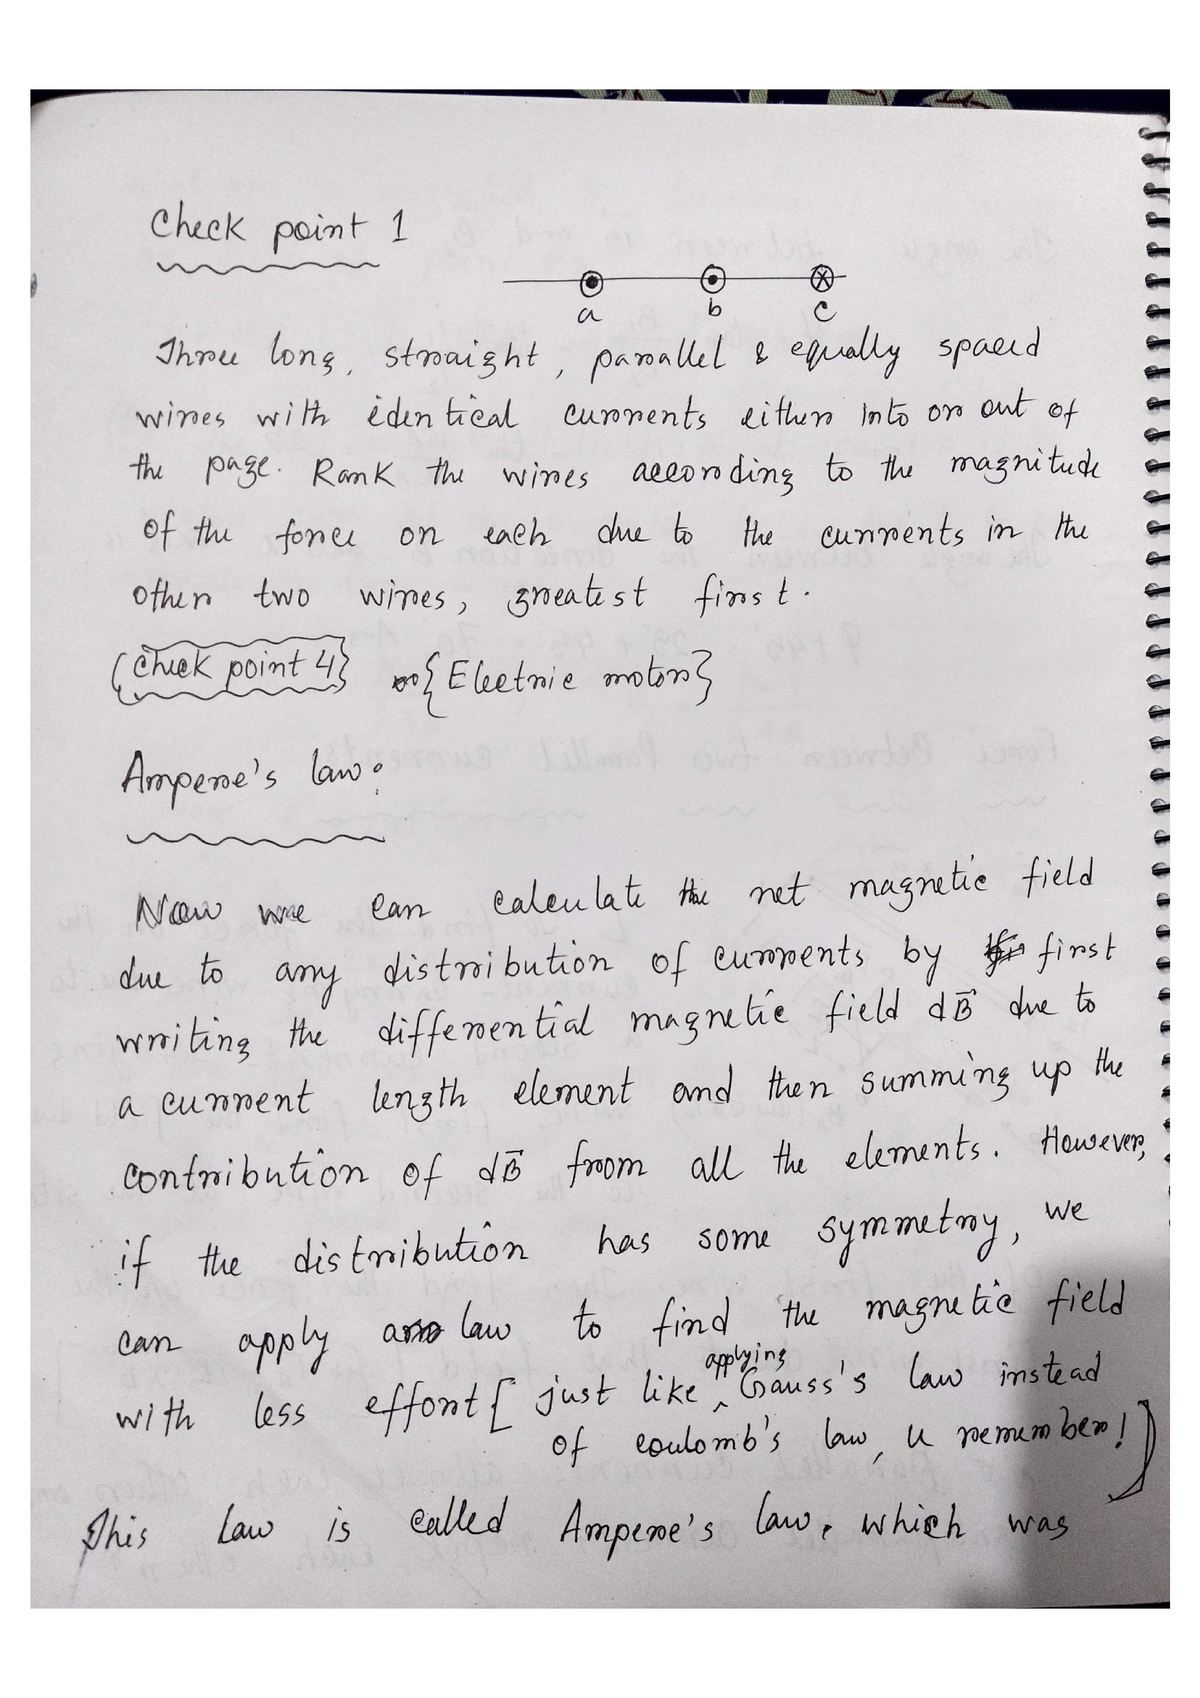 Check point 1
a b c
Three long, straight, parallel & equally spaced
wires with identical currents either into or out of
the page. Rank the wires according to the magnitude
of the force on each due to the currents in the
other two wires, greatest first.
{Check point 4} {Electric motor}
Ampere's law:
Now we can calculate the net magnetic field
due to any distribution of currents by first
writing the differential magnetic field dB̄ due to
a current length element and then summing up the
contribution of dB̄ from all the elements. However,
if the distribution has some symmetry, we
can apply law to find the magnetic field
with less effort [just like applying Gauss's law instead
of coulomb's law, u remember!]
This law is called Ampere's law, which was